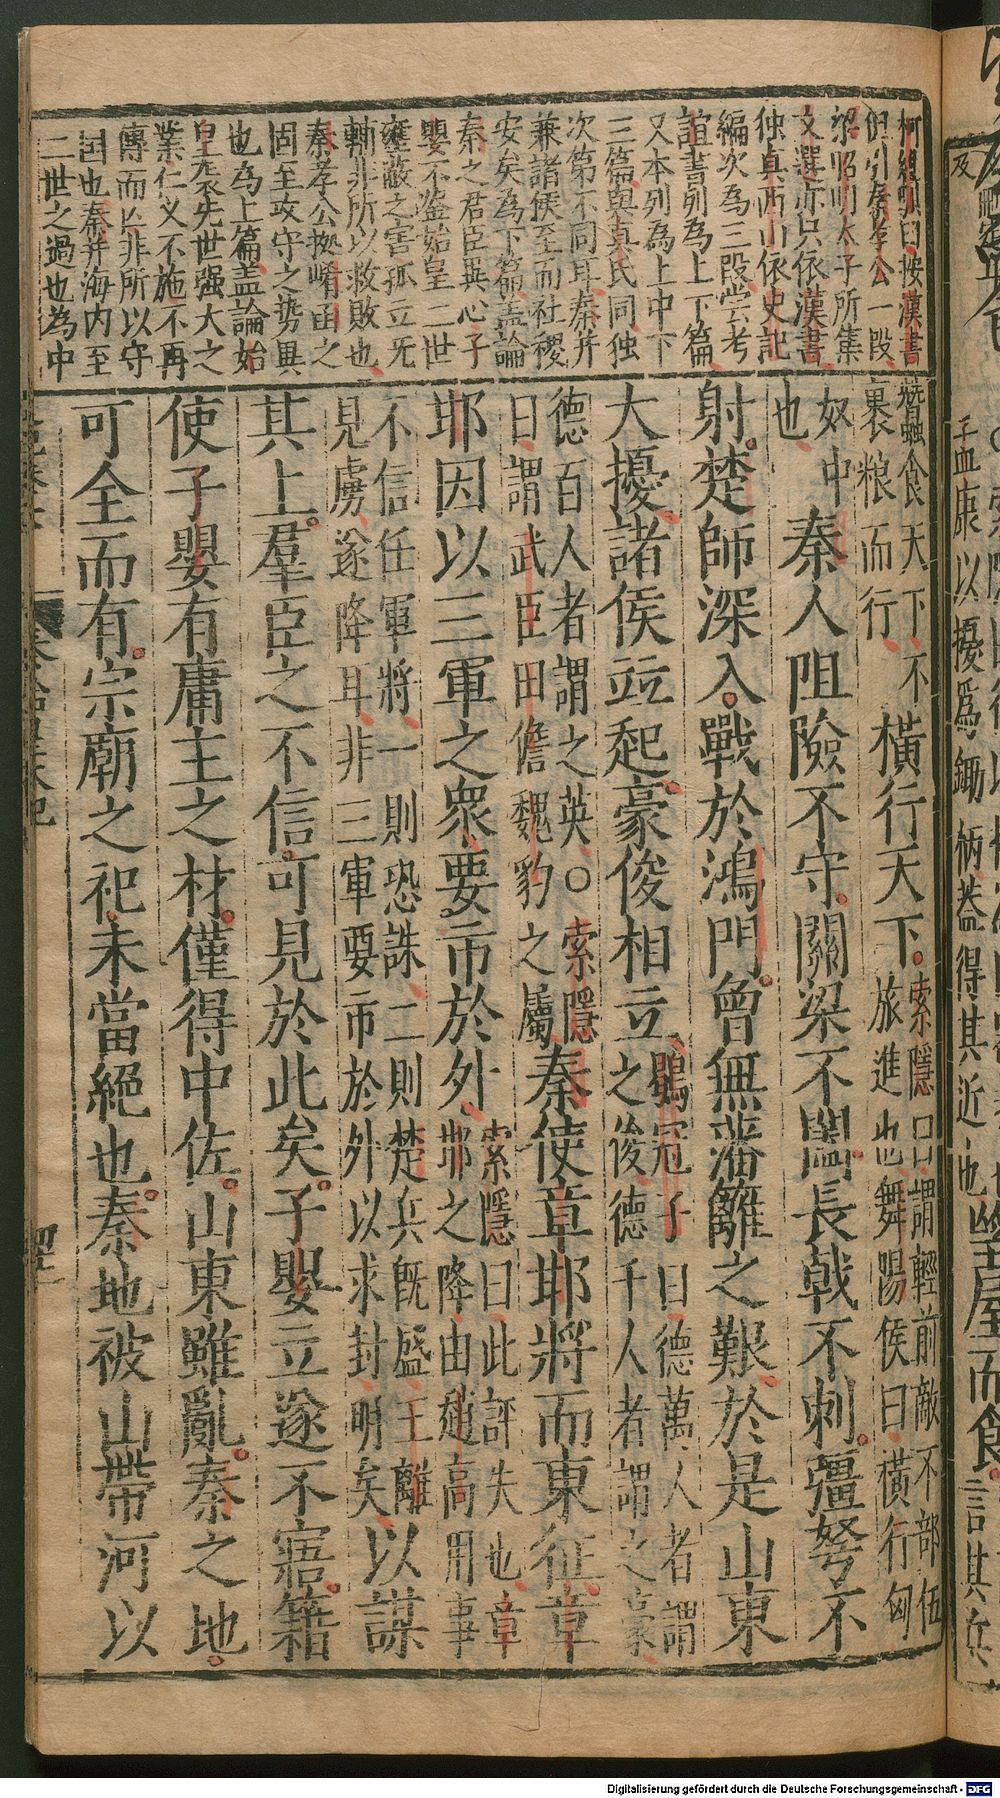 柯維騏曰按漢書
但引秦孝公一段
梁昭明太子所集
文選亦只依漢書
独真西山依史記
編次為三段嘗考
誼書列為上下篇
又本列為上中下
三篇與真氏同独
次第不同耳秦并
兼諸侯至而社稷
安矣為下篇盖論
秦之君臣異心子
嬰不監始皇二世
壅蔽之害孤立无
輔非所以救敗也
秦孝公據崤函之
固至攻守之势異
也為上篇盖論始
皇先世强大之
業仁义不施不再
傳而亡非所以守
国也秦并海内至
二世之過也為中
蠶食天下不
裹粮而行
橫行天下
索隱曰謂輕前敵不部伍
旅進也舞陽侯曰橫行匈
奴中
也
秦人阻險不守關梁不闔長戟不刺彊弩不
射楚師深入戰於鴻門曾無藩籬之艱於是山東
大擾諸侯竝起豪俊相立
鶡冠子曰德萬人者謂
之俊德千人者謂之豪
德百人者謂之英○索隱
曰謂武臣田儋魏豹之屬
秦使章邯將而東征章
邯因以三軍之衆要市於外
索隱曰此評失也章
邯之降由趙高用事
不信任軍將一則恐誅二則楚兵既盛王離
見虜遂降耳非三軍要市於外以求封明矣
以謀
其上羣臣之不信可見於此矣子嬰立遂不寤籍
使子嬰有庸主之材僅得中佐山東雖亂秦之地
可全而有宗廟之祀未當絕也秦地被山帶河以
孟康以擾爲鋤柄蓋得其近也
而食
言其兵
Digitalisierung gefördert durch die Deutsche Forschungsgemeinschaft - DFG